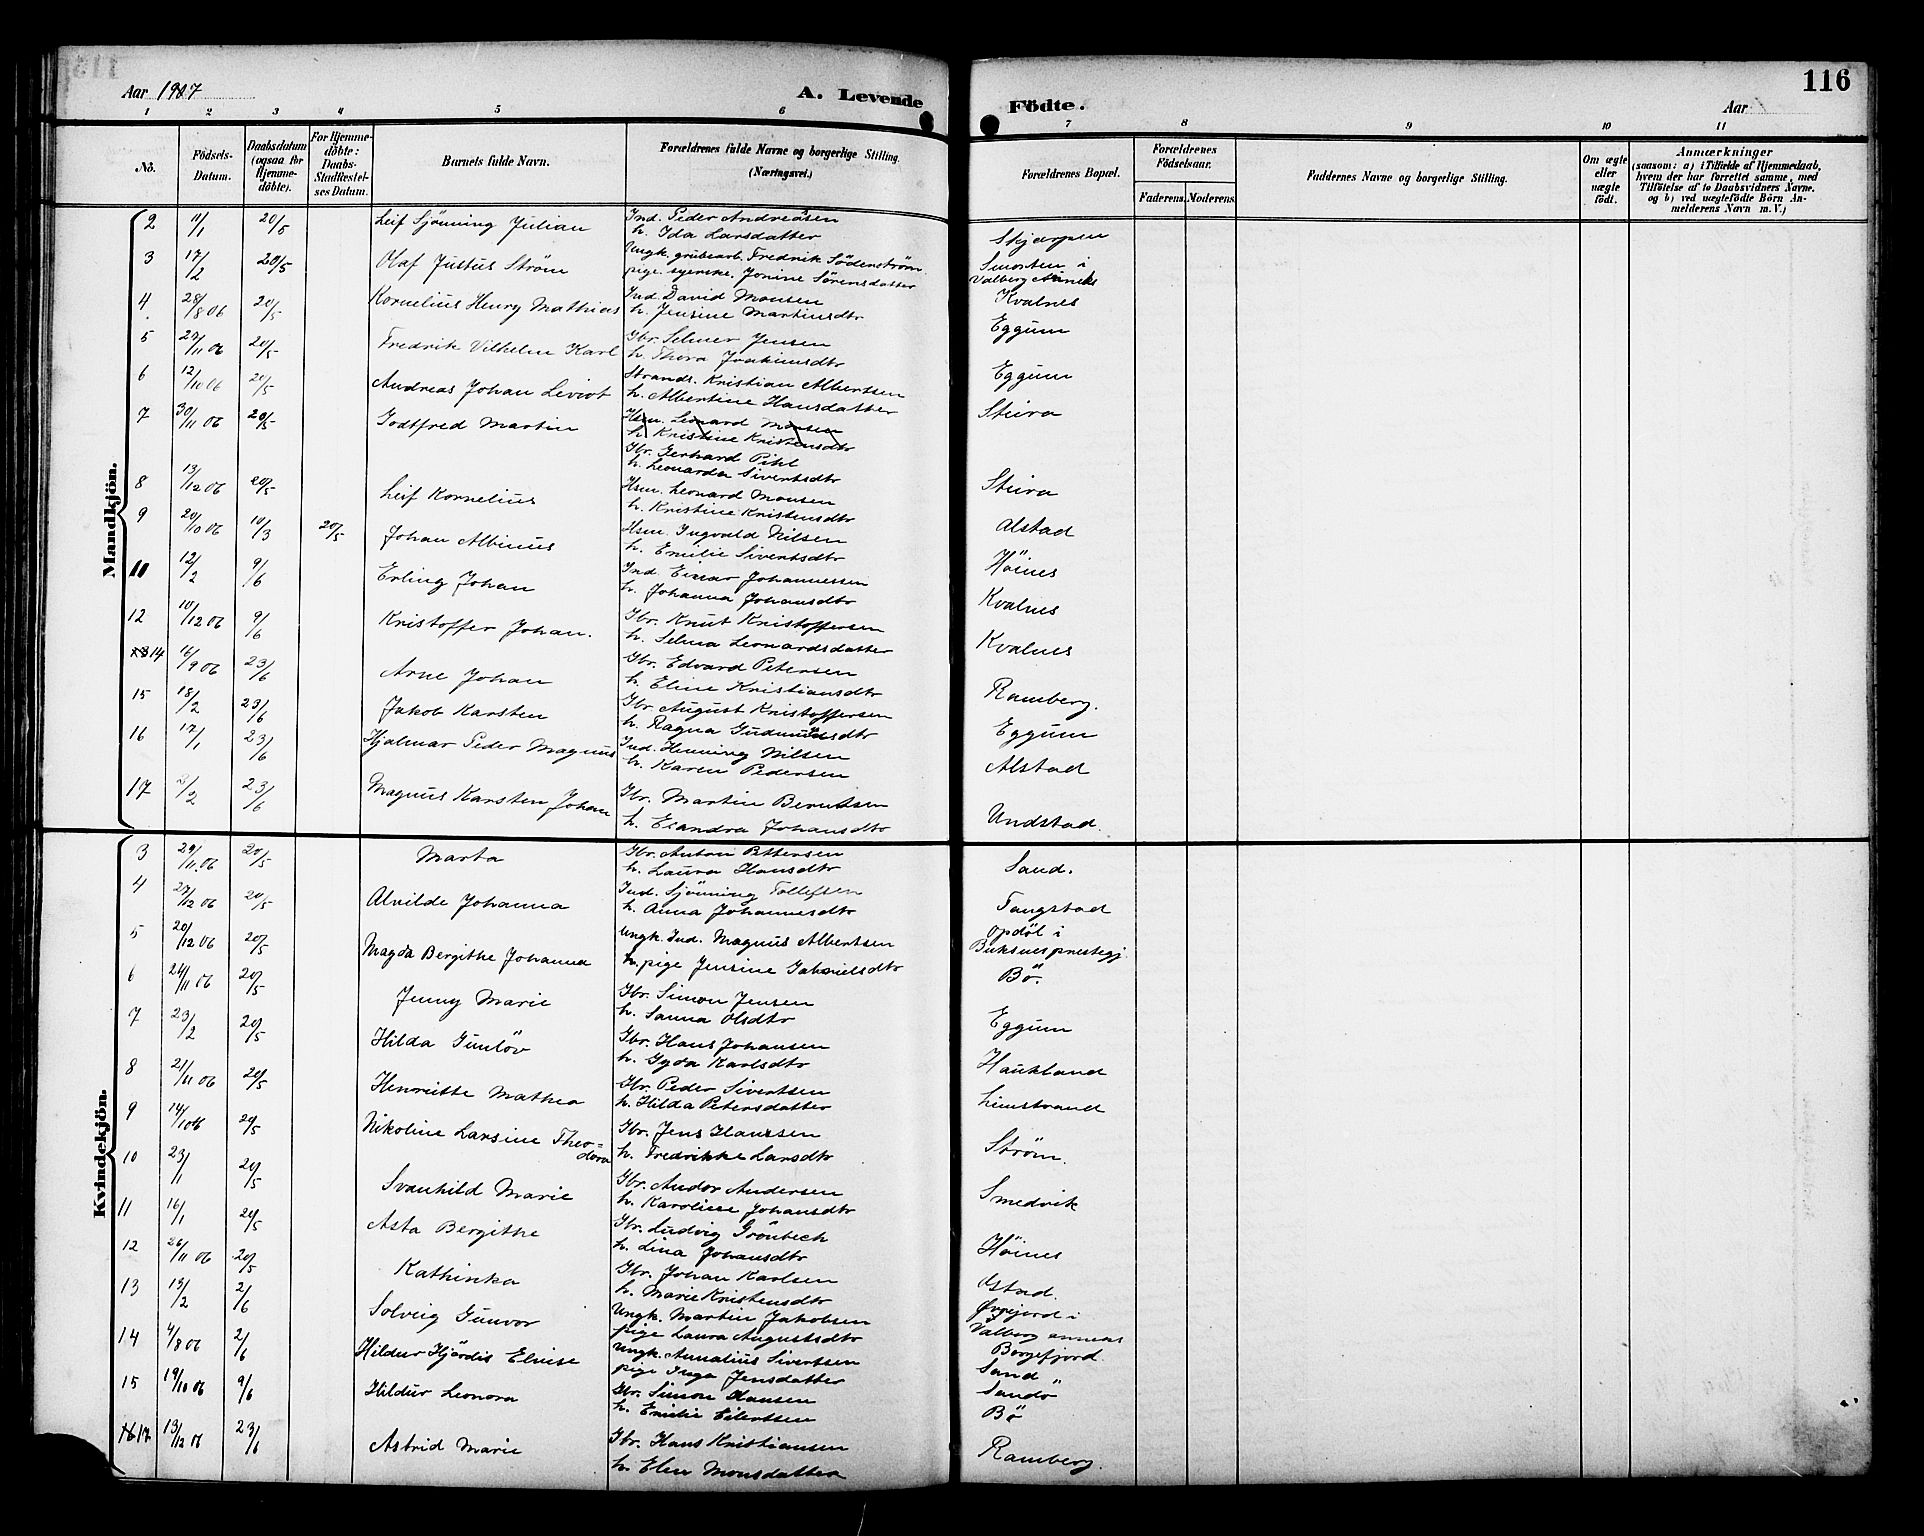 Aar 1907
A. Levende
Födte.
Aar
116
1 2 3 4 5 6 7 8 9 10 11
No.
Födsels-Datum.
Daabsdatum (ogsaa for Hjemmedöbte).
For Hjemmedöbte: Daabs-Stadfæstelses Datum.
Barnets fulde Navn.
Forældrenes fulde Navne og borgerlige Stilling. (Næringsvei.)
Forældrenes Bopæl.
Forældrenes Födselsaar.
Faderens. Moderens.
Faddernes Navne og borgerlige Stilling.
Om ægte eller uægte födt.
Anmærkninger (saasom: a) i Tilfælde af Hjemmedaab, hvem der har forrettet samme, med Tilföielse af to Daabsvidners Navne, og b) ved uægtefödte Börn Anmelderens Navn m. V.)
Mandkjön.
2 11/1 20/5 Leif Sjönning Julian Ind. Peder Andreasen Skjerpen
h. Ida Larsdatter
3 17/2 20/5 Olaf Justus Ström Ungk. grubearb. Fredrik Söderström Smorten i
pige syerske, Jonine Sörensdatter Valberg Annek
4 28/8 06 20/5 Kornelius Henry Mathias Ind. David Monsen Kvalnes
h. Jensine Martinsdtr
5 27/11 06 20/5 Fredrik Vilhelm Karl Gbr. Selmer Jensen Eggum
h. Thora Joakimsdtr
6 12/10 06 20/5 Andreas Johan Leviot Strands. Kristian Albertsen Eggum
h. Albertine Hansdatter
7 30/11 06 20/5 Godtfred Martin Hsm. Leonard Monsen Steira
h. Kristine Kristensdtr
Gbr. Gerhard Pihl
h. Leonarda Sivertsdtr
8 13/12 06 20/5 Leif Kornelius Hsm. Leonard Monsen Steira
h. Kristine Kristensdtr
9 20/10 06 10/3 20/5 Johan Albinus Hsm. Ingvald Nilsen Alstad
h. Emilie Sivertsdtr
10 12/2 9/6 Erling Johan Ind. Einar Johannessen Höines
h. Johanna Johansdtr
12 10/12 06 9/6 Kristoffer Johan. Gbr. Knut Kristoffersen Kvalnes
h. Selma Leonardsdatter
14 16/9 06 23/6 Arne Johan Gbr. Edvard Petersen Kvalnes
h. Eline Kristiansdtr
15 18/2 23/6 Jakob Karsten Gbr. August Kristoffersen Ramberg.
h. Ragna Gudmundsdtr
16 17/1 23/6 Hjalmar Peder Magnus Ind. Henning Nilsen Eggum
h. Karen Pedersen Alstad
17 2/2 23/6 Magnus Karsten Johan Gbr. Martin Berntsen Undstad.
h. Elandra Johansdtr
Kvindekjön.
3 29/11 06 20/5 Marta Gbr. Anton Pettersen Sand.
h. Laura Hansdtr
4 27/12 06 20/5 Alvilde Johanna Ind. Sjönning Tollefsen Tangstad
h. Anna Johannesdtr
5 20/12 06 20/5 Magda Bergithe Johanna Ungk. Ind. Magnus Albertsen Opdöl i
pige Jensine Gabrielsdtr Buksnes prestegj.
6 26/11 06 20/5 Jenny Marie Gbr. Simon Jensen Bö.
h. Sanna Olsdtr
7 23/2 20/5 Hilda Gunlöv Gbr. Hans Johansen Eggum
h. Gyda Karlsdtr
8 21/11 06 20/5 Henriette Mathea Gbr. Peder Sivertsen Haukland
h. Hilda Petersdatter
9 14/10 06 20/5 Nikoline Larsine Theo= Gbr. Jens Hansen Limstrand
dora h. Fredrikke Larsdtr
10 23/1 20/5 Svanhild Marie Gbr. Andor Andersen Ström.
h. Karoline Johansdtr
11 16/1 20/5 Asta Bergithe Gbr. Ludvig Grönbech Smedvik
h. Lina Johansdtr
12 26/11 06 20/5 Kathinka Gbr. Johan Karlsen Höines
h. Marie Kristensdtr
13 13/2 2/6 Solveig Gunvor Ungk. Martin Jakobsen Ostad.
pige Laura Augustsdtr Valberg annex
14 4/8 06 2/6 Hildur Hjördis Elvise Ungk. Annalius Sivertsen Borgefjord.
pige Inga Jensdatter Sand
15 19/10 06 9/6 Hildur Leonora Gbr. Simon Hansen Sandö
h. Emilie Eilertsen Bö
17 13/12 06 23/6 Astrid Marie Gbr. Hans Kristiansen Ramberg.
h. Elen Monsdatter